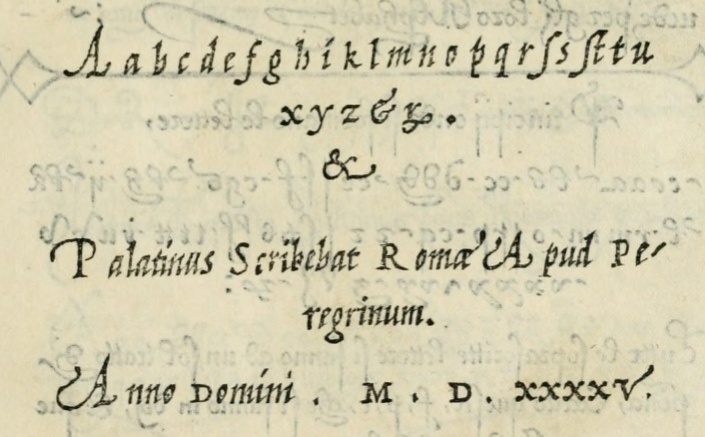 A a b c d e f g h i k l m n o p q r ſ s ſt t u
x y z & ꝝ.
&
Palatinus Scribebat Romæ Apud Pe-
regrinum.
Anno Domini. M. D. XXXXV.